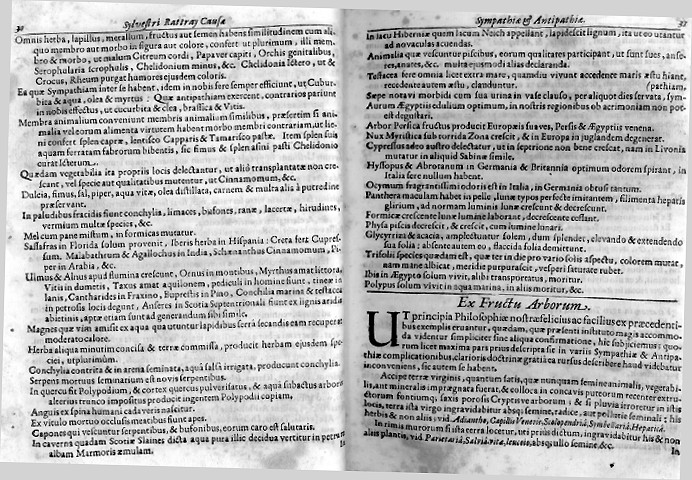 30 Sylvestri Rattray Causæ
Omnis herba, lapillus, metallum, fructus aut semen habens similitudinem cum ali-
quo membro aut morbo in figura aut colore, confert ut plurimum, illi mem-
bro & morbo, ut malum Citreum cordi, Papaver capiti, Orchis genitalibus,
Scrophularia scrophulis, Chelidonium minus, &c. Chelidonia Ictero, ut &
Crocus, Rheum purgat humores ejusdem coloris.
Ea quæ Sympathiam inter se habent, idem in nobis fere semper efficiunt, ut Cucur-
bita & aqua, olea & myrtus; Quæ antipathiam exercent, contrarios pariunt
in nobis effectus, ut cucurbita & olea, brassica & Vitis.
Membra animalium conveniunt membris animalium similibus, præsertim si ani-
malia veleorum alimenta virtutem habent morbo membri contrariam, ut lie-
ni confert splen capræ, lentisco Capparis & Tamarisco pastæ. Item splen sus
aquam ferratam fabrorum bibentis, sic fimus & splen asini pasti Chelidonio
curat Icterum.
Quædam vegetabilia ita propriis locis delectantur, ut alio transplantatæ non cre-
scant, vel specie aut qualitatibus mutentur, ut Cinnamomum, &c.
Dulcia, fimus, sal, piper, aqua vitæ, olea distillata, carnem & multa alia à putredine
præservant.
In paludibus fracidis fiunt conchylia, limaces, bufones, ranæ, lacertæ, hirudines,
vermium multæ species, &c.
Mel cum pane mistum, in formicas mutatur.
Sassafras in Florida solum provenit, Iberis herba in Hispania: Creta fert Cupres-
sum. Malabathrum & Agallochus in India, Schœnanthus Cinnamomum, Pi-
per in Arabia, &c.
Ulmus & Alnus apud flumina crescunt, Ornus in montibus, Myrthus amat littora,
Vitis in dumetis, Taxus amat aquilonem, pediculi in homine fiunt, tineæ in
lanis, Cantharides in Fraxino, Euprestis in Pino, Conchilia marina & testacea
in petrosis locis degunt, Anseres in Scotia Septentrionali fiunt ex lignis aridis
abietinis, apte etiam sunt ad generandum sibi simile.
Magnes quæ vim amisit ex aqua qua utuntur lapidibus serra secandis eam recuperat
moderato calore.
Herba aliqua minutim concisa & terræ commissa, producit herbam ejusdem spe-
ciei, ut plurimum.
Conchylia contrita & in arena seminata, aqua salsa irrigata, producunt conchylia.
Serpens mortuus seminarium est novis serpentibus.
In quercu fit Polypodium, & cortex quercus pulverisatus, & aqua subactus arboris
alterius trunco impositus producit ingentem Polypodii copiam,
Anguis ex spina humani cadaveris nascitur.
Ex vitulo mortuo occluso meatibus fiunt apes.
Capones qui vescuntur serpentibus, & bufonibus, eorum caro est salutaris.
In caverna quadam Scotiæ Slaines dicta aqua pura illic decidua vertitur in petram
albam Marmoris æmulam.
In
Sympathiæ & Antipathiæ.
In lacu Hiberniæ quem lacum Neich appellant, lapidescit lignum, ita ut eo utantur
ad novaculas acuendas.
Animalia quæ vescuntur piscibus, eorum qualitates participant, ut sunt sues, anse-
res, anates, &c. multa ejusmodi alias declaranda.
Testacea fere omnia licet extra mare, quamdiu vivunt accedente maris æstu hiant,
recedente autem æstu, clauduntur.
Sæpe notavi morbida cum sua urina in vase clauso, per aliquot dies servata, sym-
Aurum Ægyptii edulium optimum, in nostris regionibus ob acrimoniam non pot-
est degustari.
Arbor Persica fructus producit Europæis suaves, Persis & Ægyptiis venena.
Nux Myristica sub torrida Zona crescit, & in Europa in juglandem degenerat.
Cypressus adeo austro delectatur, ut in septrione non bene crescat, nam in Livonia
mutatur in aliquid Sabinæ simile.
Hyssopus & Abrotanum in Germania & Britannia optimum odorem spirant, in
Italia fere nullum habent.
Ocymum fragrantissimi odoris est in Italia, in Germania obtusi tantum.
Panthera maculam habet in pelle, lunæ typos perfecte imitantem, similimenta hepatis
glirium, ad normam luminis lunæ crescunt & decrescunt.
Formicæ crescente lunæ lumine laborant, decrescente cessant.
Physa piscis decrescit, & crescit, cum lumine lunari.
Glycyriza & acacia, amplectuntur solem, dum splendet, elevando & extendendo
sua folia: absente autem eo, flaccida folia demittunt.
Trifolii species quædam est, quæ ter in die pro vario solis aspectu, colorem mutat,
nam mane albicat, meridie purpurascit, vesperi saturate rubet.
Ibis in Ægypto solum vivit, alibi transportatus, moritur.
Polypus solum vivit in aqua marina, in aliis moritur, &c.
Ex Fructu Arborum.
UT principia Philosophiæ nostræ felicius ac facilius ex præcedenti-
bus exemplis eruantur, quædam, quæ præsenti instituto magis accommo-
da videntur simpliciter sine aliqua confirmatione, hic subjiciemus; quo-
rum licet maxima pars prius descripta sit in variis Sympathiæ & Antipa-
thiæ complicationibus, clarioris doctrinæ gratia ea rursus describere haud videbatur
inconveniens, sic autem se habent.
Accipe terræ virginis, quantum satis, quæ nunquam semine animalis, vegetabi-
lis, aut mineralis impregnata fuerat, & colloca in concavis puteorum recenter extru-
ctorum fontiumq; saxis porosis Cryptis ve arborum; & si pluvia irroretur in istis
locis, terra ista virgo ingravidabitur absq; semine, radice, aut pediente seminali: his
herbis & non aliis vid. Adiantho, Capillis Veneris, Scolopendria, Symballaria, Hepatica.
In rimis murorum si ista terra locetur, uti prius dictum, ingravidabitur his & non
aliis plantis, vid. Parietaria, Salvia vitæ, leucoio, absq; ullo semine, &c.
In